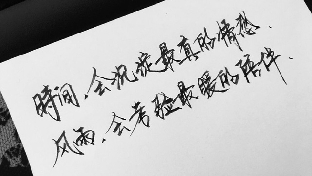 時间.会沉淀最真的情感.
风雨.会考验最暖的陪伴.